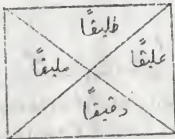 طليقًا
عليقًا مليقًا
دقيقًا